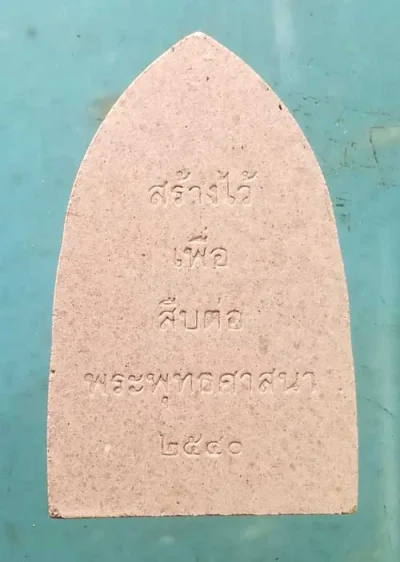 สร้างไว้
เพื่อ
สืบต่อ
พระพุทธศาสนา
๒๕๔๐